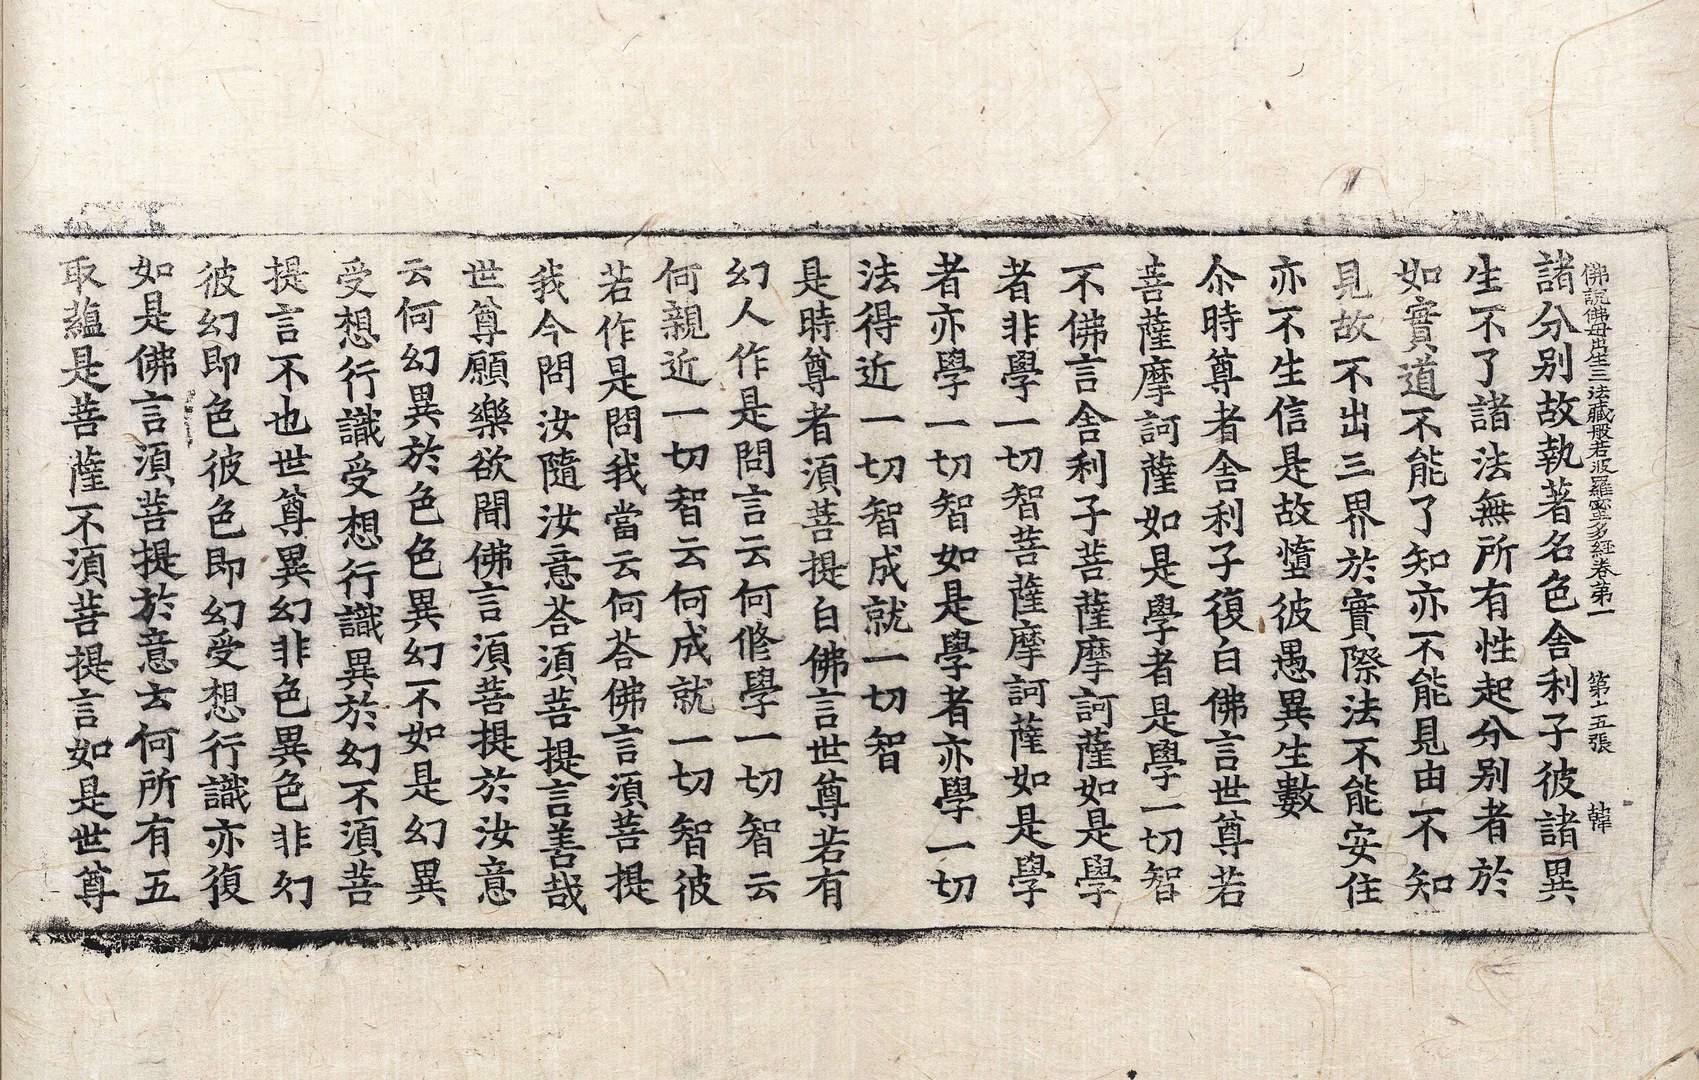 佛說佛母出生三法藏般若波羅蜜多經卷第一　第十五張　韓
諸分別故執著名色舍利子彼諸異
生不了諸法無所有性起分別者於
如實道不能了知亦不能見由不知
見故不出三界於實際法不能安住
亦不生信是故墮彼愚異生數
尒時尊者舍利子復白佛言世尊若
菩薩摩訶薩如是學者是學一切智
不佛言舍利子菩薩摩訶薩如是學
者非學一切智菩薩摩訶薩如是學
者亦學一切智如是學者亦學一切
法得近一切智成就一切智
是時尊者湏菩提白佛言世尊若有
幻人作是問言云何修學一切智云
何親近一切智云何成就一切智彼
若作是問我當云何荅佛言湏菩提
我今問汝隨汝意荅湏菩提言善哉
世尊願樂欲聞佛言湏菩提於汝意
云何幻異於色色異幻不如是幻異
受想行識受想行識異於幻不湏菩
提言不也世尊異幻非色異色非幻
彼幻即色彼色即幻受想行識亦復
如是佛言湏菩提於意云何所有五
取蘊是菩薩不湏菩提言如是世尊